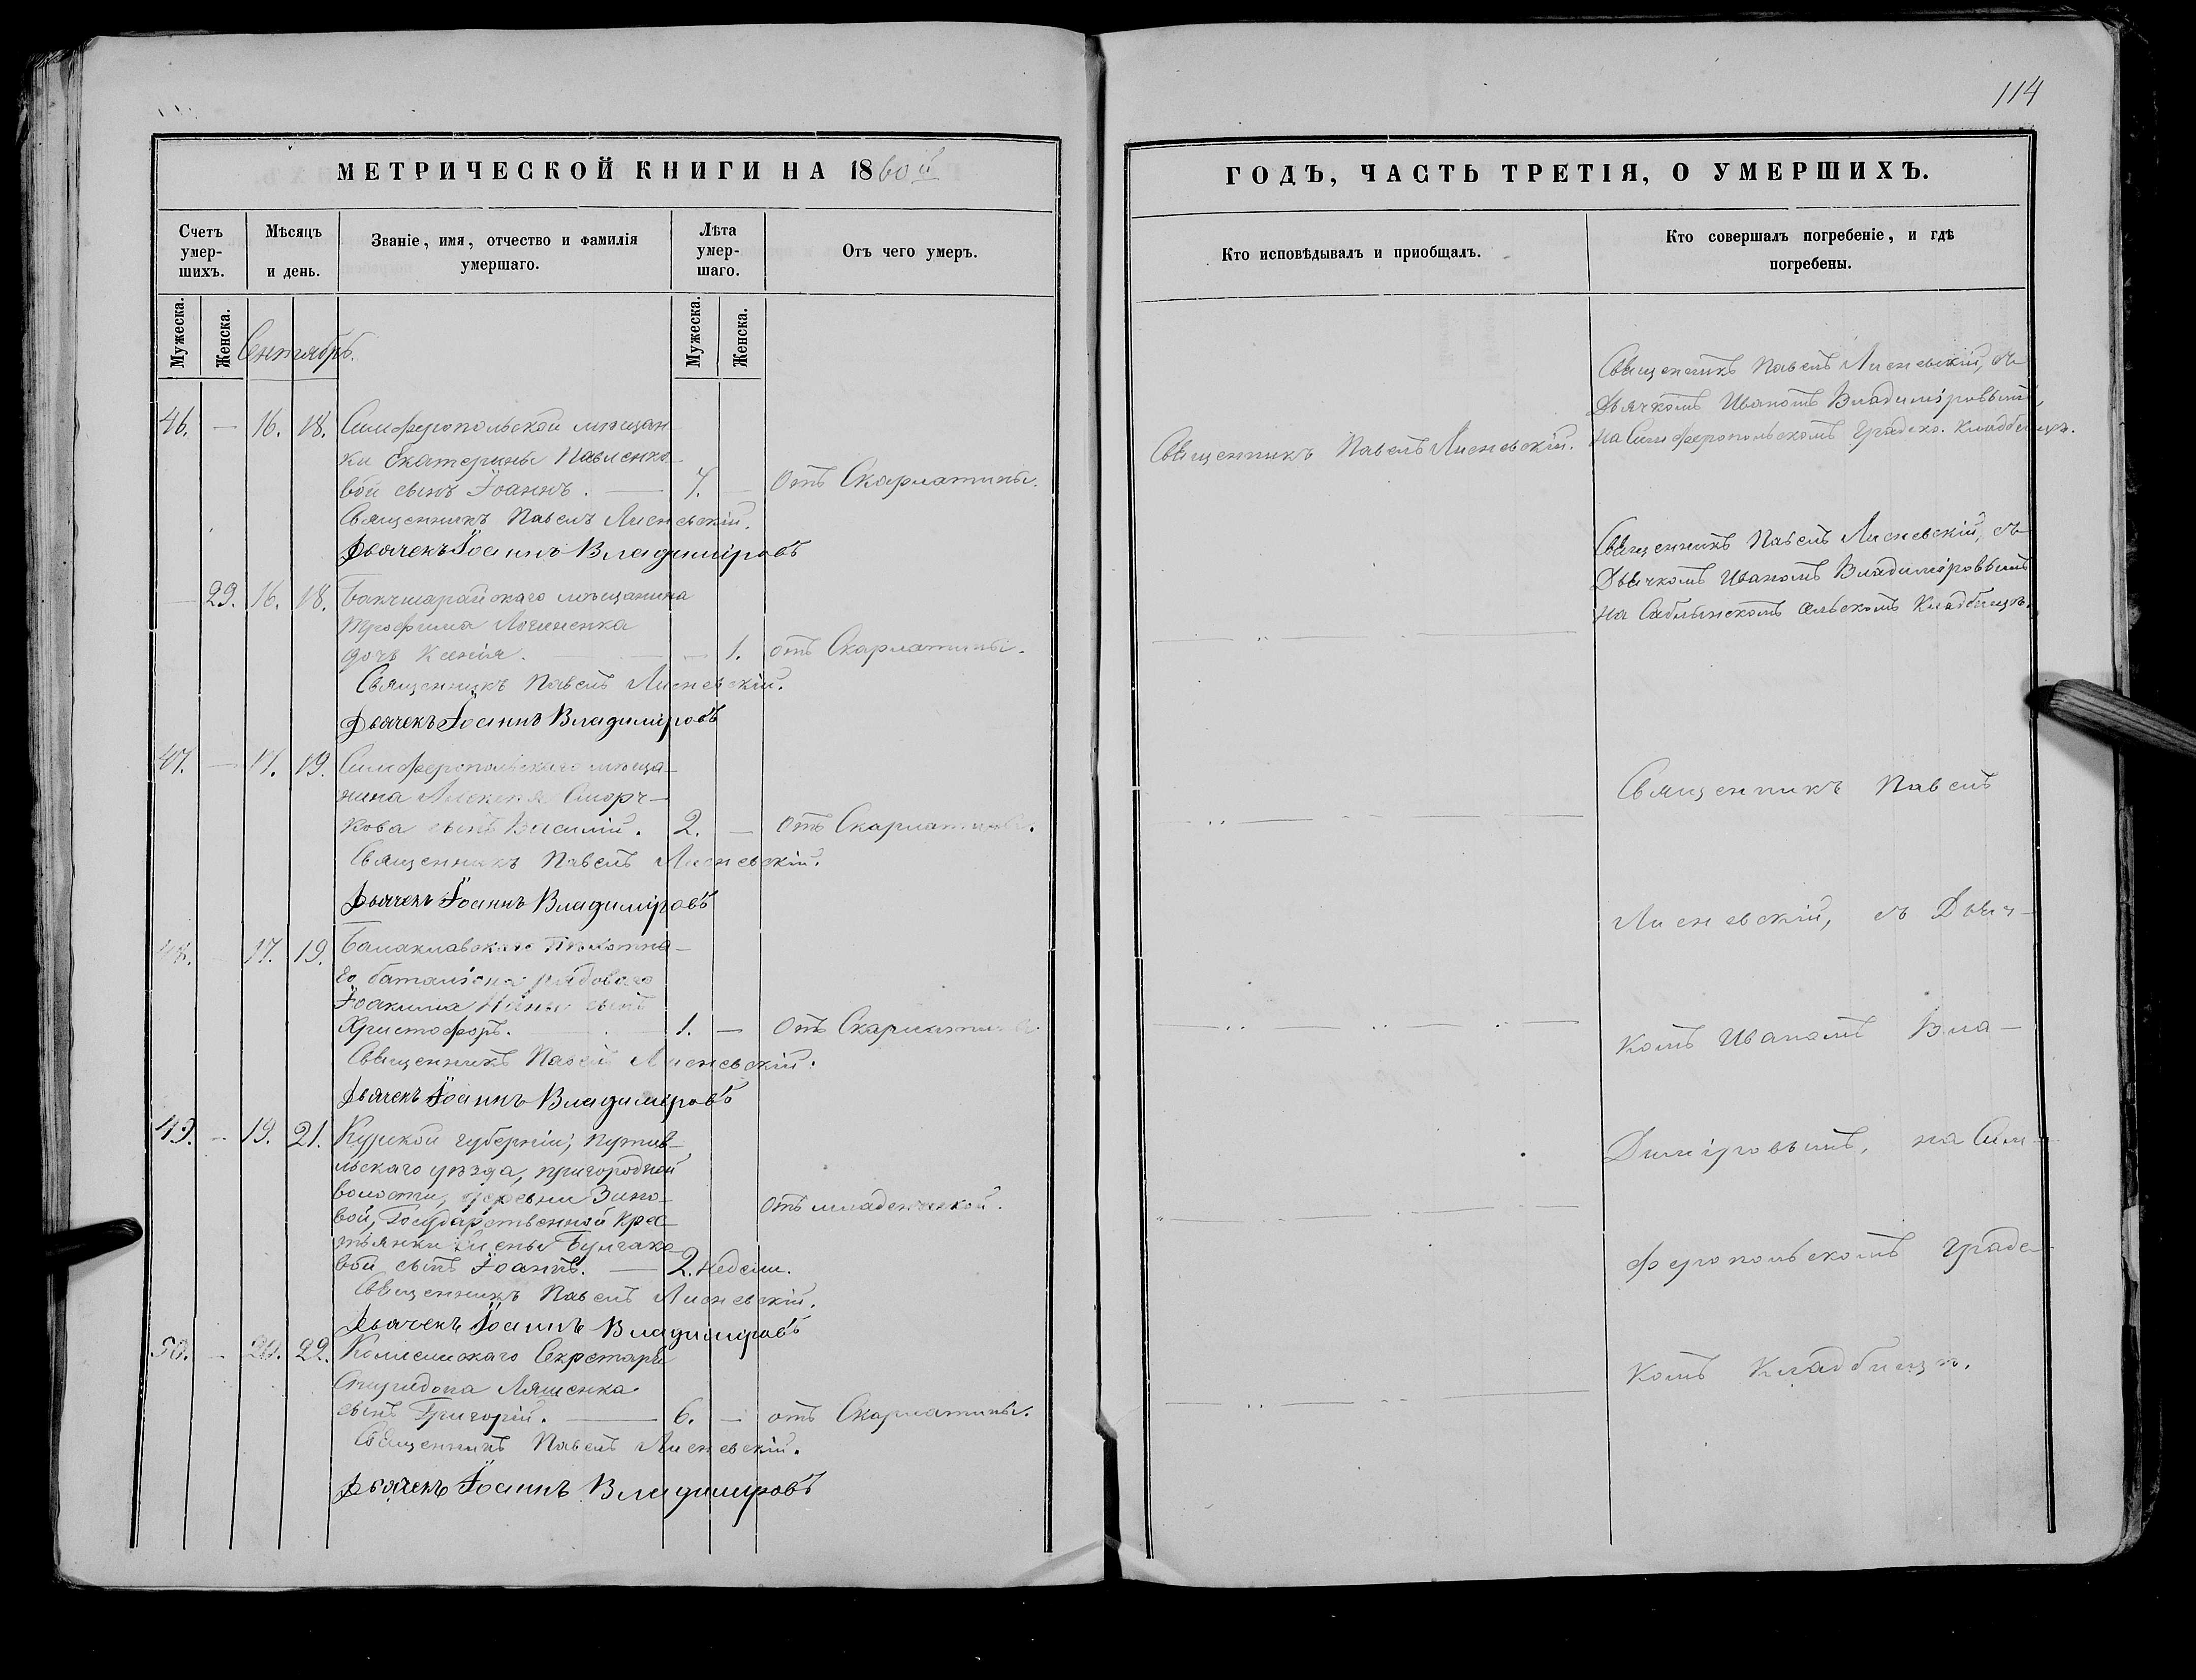 114
МЕТРИЧЕСКОЙ КНИГИ НА 1860й
Счетъ умер-шихъ.
Мѣсяцъ и день.
Званіе, имя, отчество и фамилія умершаго.
Лѣта умер-шаго.
Отъ чего умеръ.
Мужеска.
Женска.
Мужеска.
Женска.
Сентябрь.
46. — 16. 18. Симферопольской мѣщан-
ки Екатерины Павленко-
вой сынъ Іоаннъ. — 7. — отъ Скарлатины.
Священникъ Павелъ Лисневскій.
Дьячекъ Іоаннъ Владиміровъ
— 29. 16. 18. Бакчисарайскаго мѣщанина
Трофима
дочь Ксенія. — — 1. отъ Скарлатины.
Священникъ Павелъ Лисневскій.
Дьячекъ Іоаннъ Владиміровъ
47. — 17. 19. Симферопольскаго мѣща-
нина Алексѣя Сморч-
кова сынъ Василій. 2. — отъ Скарлатины.
Священникъ Павелъ Лисневскій.
Дьячекъ Іоаннъ Владиміровъ
48. 17. 19. Балаклавскаго Пѣхотна-
го баталіона рядоваго
Іоакима сынъ
Христофоръ. — 1. — отъ Скарлатины.
Священникъ Павелъ Лисневскій.
Дьячекъ Іоаннъ Владиміровъ
49. — 19. 21. Курской губерніи, Путив-
льскаго уѣзда, пригородней
волости, деревни Зино-
вой, Государственной крес-
тьянки Елены Булгако-
вой сынъ Іоаннъ. — 2. недели.
отъ младенческой.
Священникъ Павелъ Лисневскій.
Дьячекъ Іоаннъ Владиміровъ
50. — 20. 22. Колежскаго Секретаря
Спиридона Ляшенка
сынъ Григорій. — 6. — отъ Скарлатины.
Священникъ Павелъ Лисневскій.
Дьячекъ Іоаннъ Владиміровъ
ГОДЪ, ЧАСТЬ ТРЕТІЯ, О УМЕРШИХЪ.
Кто исповѣдывалъ и приобщалъ.
Кто совершалъ погребеніе, и гдѣ погребены.
Священникъ Павелъ Лисневскій.
Священникъ Павелъ Лисневскій, съ
Дьячкомъ Иваномъ Владиміровымъ,
на Симферопольскомъ Градско. Кладбищѣ.
Священникъ Павелъ Лисневскій, съ
Дьячкомъ Иваномъ Владиміровымъ
на Саблынскомъ сельскомъ Кладбищѣ.
Священникъ Павелъ
Лисневскій, съ Дьяч-
комъ Иваномъ Вла-
диміровымъ, на Сим-
феропольскомъ Градс-
комъ Кладбищѣ.